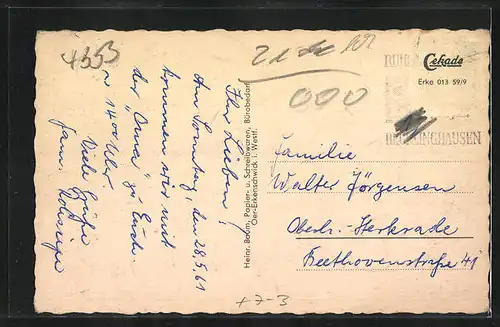 4353
21
000
RUHR
Cekade
Erke 013 59/9
RECKLINGHAUSEN
Ihr Lieben!
Am Sonntag, den 28.5.61
kommen wir mit
der "Oma" zu Euch.
14 00 Uhr.
Viele Grüße
Fam.
Heinr. Boom, Papier- u. Schreibwaren, Bürobedarf
Oer-Erkenschwick i. Westf.
Familie
Walter Jörgensen
Oberh.-Sterkrade
Beethovenstraße 41
+7-3